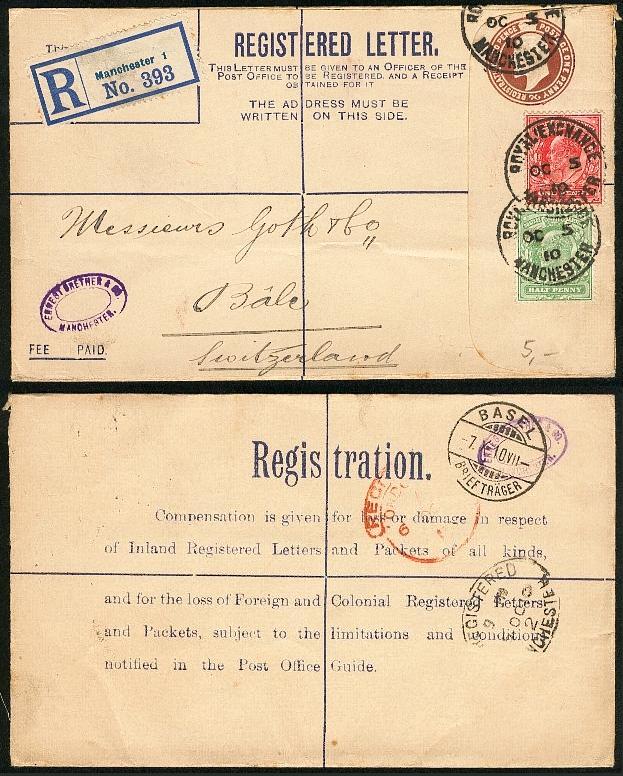 REGISTERED LETTER.
THIS LETTER MUST BE GIVEN TO AN OFFICER OF THE
POST OFFICE TO BE REGISTERED, AND A RECEIPT
OBTAINED FOR IT
THE ADDRESS MUST BE
WRITTEN ON THIS SIDE.
R
Manchester 1
No. 393
ROYAL EXCHANGE
OC 5
10
MANCHESTER
ROYAL EXCHANGE
OC 5
10
MANCHESTER
OC 5
10
MANCHESTER
HALF PENNY
Messieurs Goth & Co
Bâle
Switzerland
ERNEST BRETHER & CO
MANCHESTER.
FEE PAID.
5,-
Registration.
BASEL
-7. 10 VII-
BRIEFTRÄGER
Compensation is given for loss or damage in respect
of Inland Registered Letters and Packets of all kinds,
and for the loss of Foreign and Colonial Registered Letters
and Packets, subject to the limitations and conditions
notified in the Post Office Guide.
REGISTERED